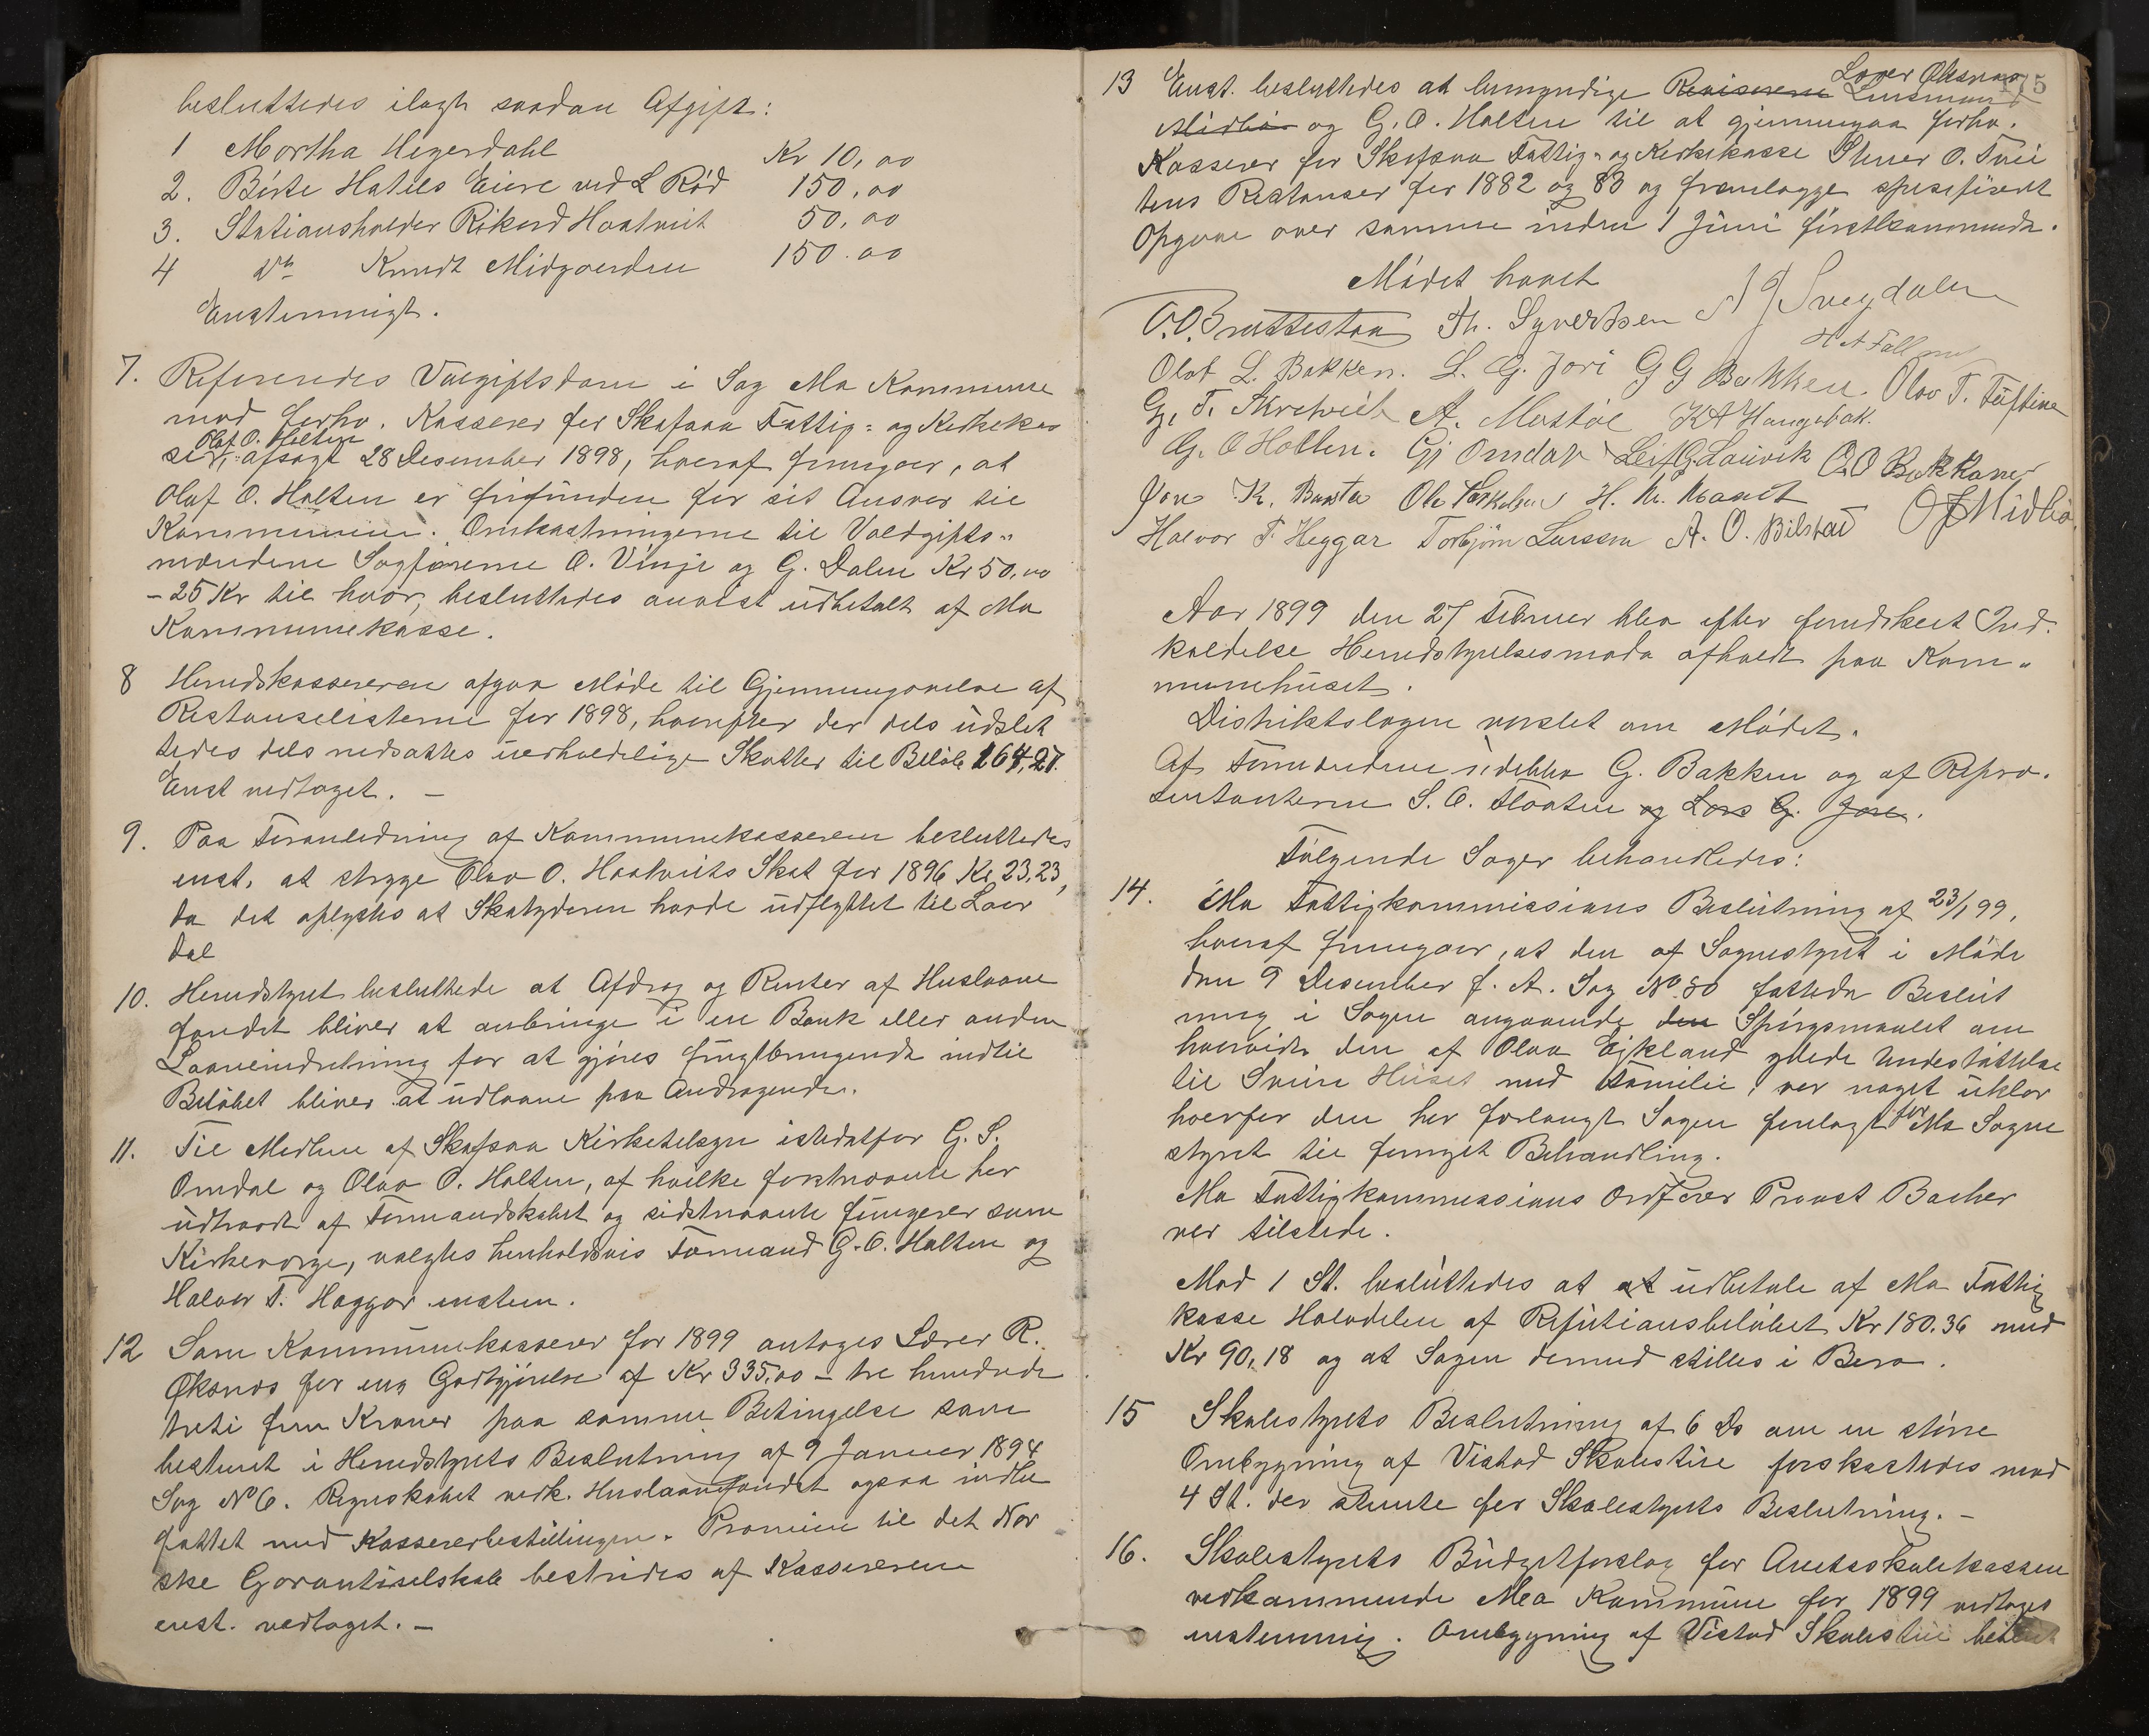 besluttedes ilagt saadan Afgift:
1 Mortha Hegerdahl Kr 10,00
2. Birte Hatvets Eiere ved L Rød 150,00
3. Stationsholder Rikard Haatveit 50,00
4 do Knudt Midgaarden 150.00
Enstemmigt.
7. Refereredes Voldgiftsdom i Sag Mo Kommune
mod forhv. Kasserer for Skafsaa Fattig- og Kirkekas
Olaf O. Holten
se, afsagt 28 Desember 1898, hvoraf fremgaar, at
Olaf O. Holten er frifunden for sit Ansvar til
Kommunen. Omkostningerne til Voldgifts-
mændene Sagførerne O. Vinje og G. Dalen Kr 50,00
- 25 Kr til hver, besluttedes anvist udbetalt af Mo
Kommunekasse.
8 Herredskassereren afgav Møde til Gjennemgaaelse af
Restanselisterne for 1898, hvorefter der dels udslet
tedes dels nedsattes uerholdelige Skatter til Beløb 164,27.
Enst vedtaget. -
9. Paa Foranledning af Kommunekassereren besluttedes
enst. at stryge Olav O. Haatveits Skat for 1896 Kr 23,23,
da det oplystes at Skatyderen havde udflyttet til Laar
dal
10. Herredstyret besluttede at Afdrag og Renter af Huslaane
fondet bliver at anbringe i en Bank eller anden
Laaneindretning for at gjøres frugtbringende indtil
Beløbet bliver at udlaane paa Andragende.
11. Til Medlem af Skafsaa Kirketilsyn istedetfor G. S.
Omdal og Olav O. Holten, af hvilke førstnævnte har
udtraadt af Formandskabet og sidstnævnte fungerer som
Kirkeværge, valgtes henholdsvis Formand G. O. Holten og
Halvor T. Heggar enstem.
12 Som Kommunekasserer for 1899 antages Lærer R.
Øksnes for en Godtgjørelse af Kr 335,00 - tre hundrede
treti fem Kroner paa samme Betingelse som
bestemt i Herredstyrets Beslutning af 9 Januar 1894
Sag No 6. Regnskabet vedk. Huslaanefondet ogsaa indbe
fattet med Kassererbestillingen. Præmien til det Nor
ske Garantiselskab bestrides af Kassereren
enst. vedtaget. -
175
Lærer Øksnes
13 Enst. besluttedes at bemyndige Revisorerne Lensmand
Midbø og G. O. Holten til at gjennemgaa forhv.
Kasserer for Skafsaa Fattig- og Kirkekasse Stener O. Tvei
tens Restanser for 1882 og 83 og fremlægge spesifiseret
Opgave over samme inden 1 Juni førstkommende.
Mødet hævet
O. O. Brattestaa Th. Syvertsen A J Svegdalen
H A Fall
Olav L. Bakken. L. G. Jori G G Bakken. Olav T. Tuftine
G. T. Skrelveit A. Mostøl K A Haugebak.
G. O Holten. Gj Omdal Leif G. Lauvik O. O Bakkane
Jon K. Bursta Ole Terkelsen H. N. Moaset
Halvor T. Heggar Torbjørn Larssen A. O. Bilstad O J Midbø.
Aar 1899 den 27 Februar blev efter forudskeet Ind-
kaldelse Herredstyrelsesmøde afholdt paa Kom-
munehuset.
Distriktslægen varslet om Mødet.
Af Formændene udeblev G. Bakken og af Repræ-
sentanterne S. O. Floaten og Lars G. Jore.
Følgende Sager behandledes:
14. Mo Fattigkommissions Beslutning af 23/1 99,
hvoraf fremgaar, at den af Sognestyret i Møde
den 9 Desember f. A. Sag No 80 fattede Beslut
ning i Sagen angaaende den Spørgsmaalet om
hvorvidt den af Olav Eikland ydede Understøttelse
til Svein Huset med Familie, var noget uklar
hvorfor den har forlangt Sagen forelagt for Mo Sogne
styret til fornyet Behandling.
Mo Fattigkommissions Ordfører Provst Bacher
var tilstede.
Mod 1 St. besluttedes at at udbetale af Mo Fattig
kasse Halvdelen af Refusionsbeløbet Kr 180.36 med
Kr 90,18 og at Sagen dermed stilles i Bero.
15 Skolestyrets Beslutning af 6 Ds om en større
Ombygning af Vistad Skolestue forkastedes mod
4 St. der stemte for Skolestyrets Beslutning. -
16. Skolestyrets Budgetforslag for Amtsskolekassen
vedkommende Mo Kommune for 1899 vedtages
enstemmig. Ombygning af Vistad Skolestue